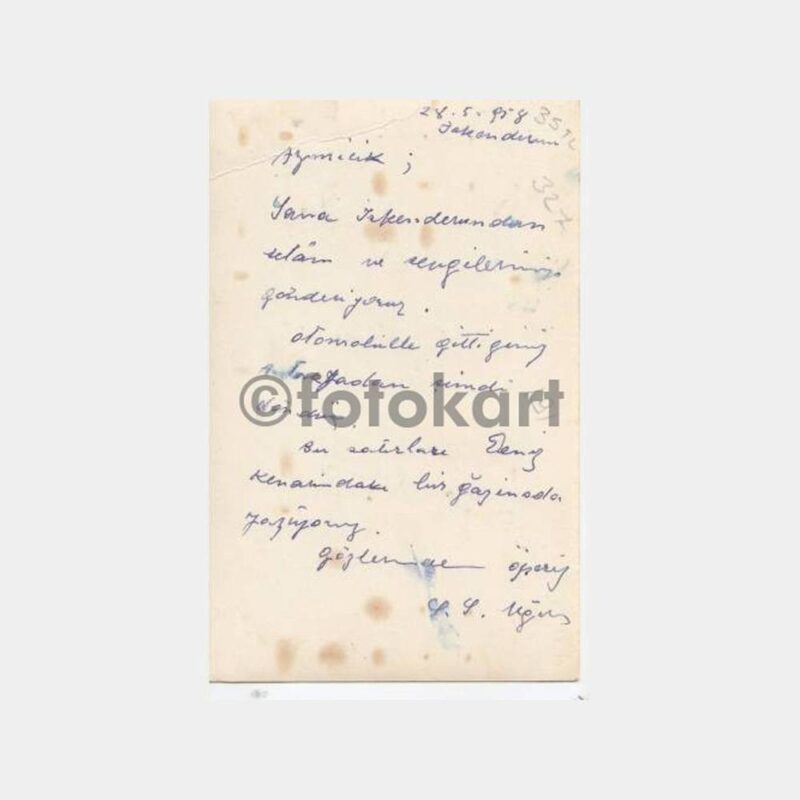 28.5.958
İskenderun
3592
327
Azmicik ;
Sana İskenderundan
selâm ve sevgilerimizi
gönderiyoruz.
otomobille gittiğimiz
şimdi
döndük.
Bu satırları Deniz
kenarındaki bir gazinoda
yazıyoruz.
Gözlerinden öperiz
S. S. Uğur
©fotokart